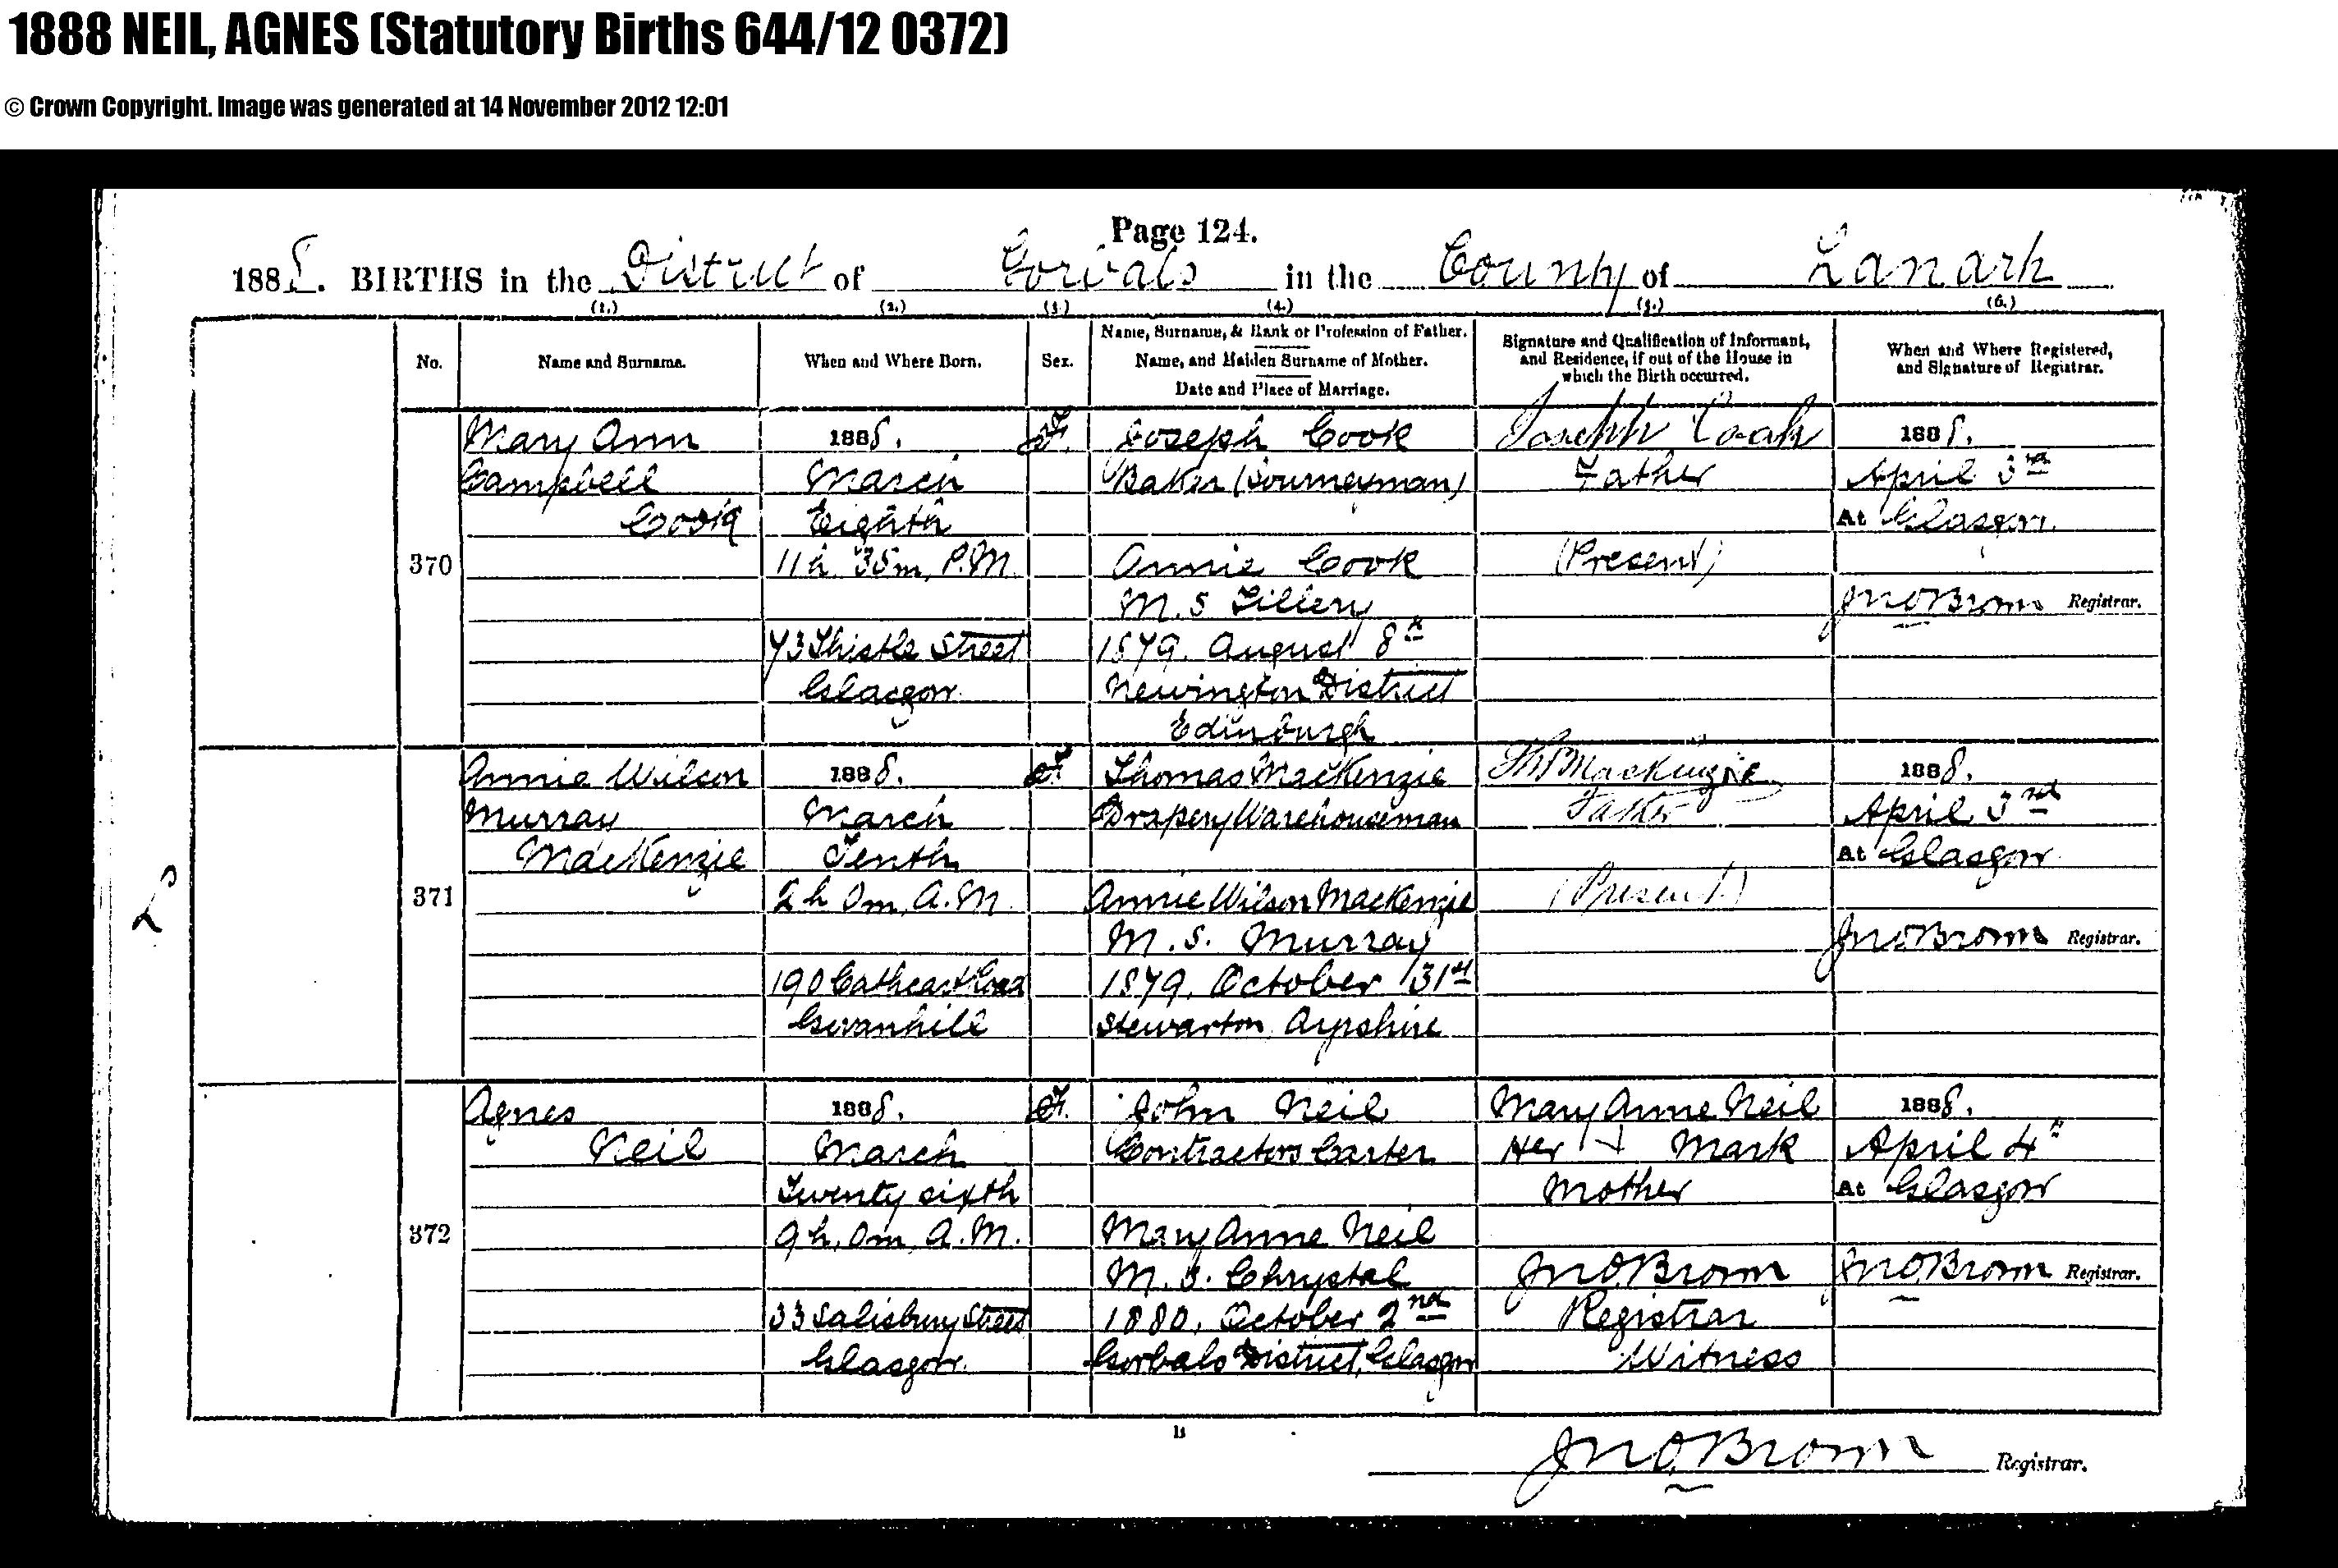 1888 NEIL, AGNES (Statutory Births 644/12 0372)
© Crown Copyright. Image was generated at 14 November 2012 12:01
Page 124.
1888. BIRTHS in the District of Gorbals in the County of Lanark
(1.) (2.) (3.) (4.) (5.) (6.)
No.
Name and Surname.
When and Where Born.
Sex.
Name, Surname, & Rank or Profession of Father.
Name, and Maiden Surname of Mother.
Date and Place of Marriage.
Signature and Qualification of Informant,
and Residence, if out of the House in
which the Birth occurred.
When and Where Registered,
and Signature of Registrar.
370
Mary Ann
Campbell
Cook
1888.
March
Eighth
11 h 35 m, P.M.
73 Thistle Street
Glasgow
F.
Joseph Cook
Baker (Journeyman)
Annie Cook
M.S Tillery
1879. August 8th
Newington District
Edinburgh
Joseph Cook
Father
(Present)
1888.
April 3rd
At Glasgow.
Jno Brown Registrar.
371
Annie Wilson
Murray
MacKenzie
1888.
March
Tenth
2 h 0 m, A.M.
190 Cathcart Road
Govanhill
F
Thomas MacKenzie
Drapery Warehouseman
Annie Wilson MacKenzie
M.S. Murray
1879. October 31st
Stewarton, Ayrshire
Th MacKenzie
Father
(Present)
1888.
April 3rd
At Glasgow
Jno Brown Registrar.
372
Agnes
Neil
1888.
March
Twenty sixth
9 h, 0 m, A.M.
33 Salisbury Street
Glasgow.
F.
John Neil
Contractors Carter
Mary Anne Neil
M.S. Chrystal
1880, October 2nd
Gorbals District, Glasgow
Mary Anne Neil
Her + Mark
Mother
Jno. Brown
Registrar
Witness
1888.
April 4th
At Glasgow
Jno. Brown Registrar.
B
Jno. Brown Registrar.